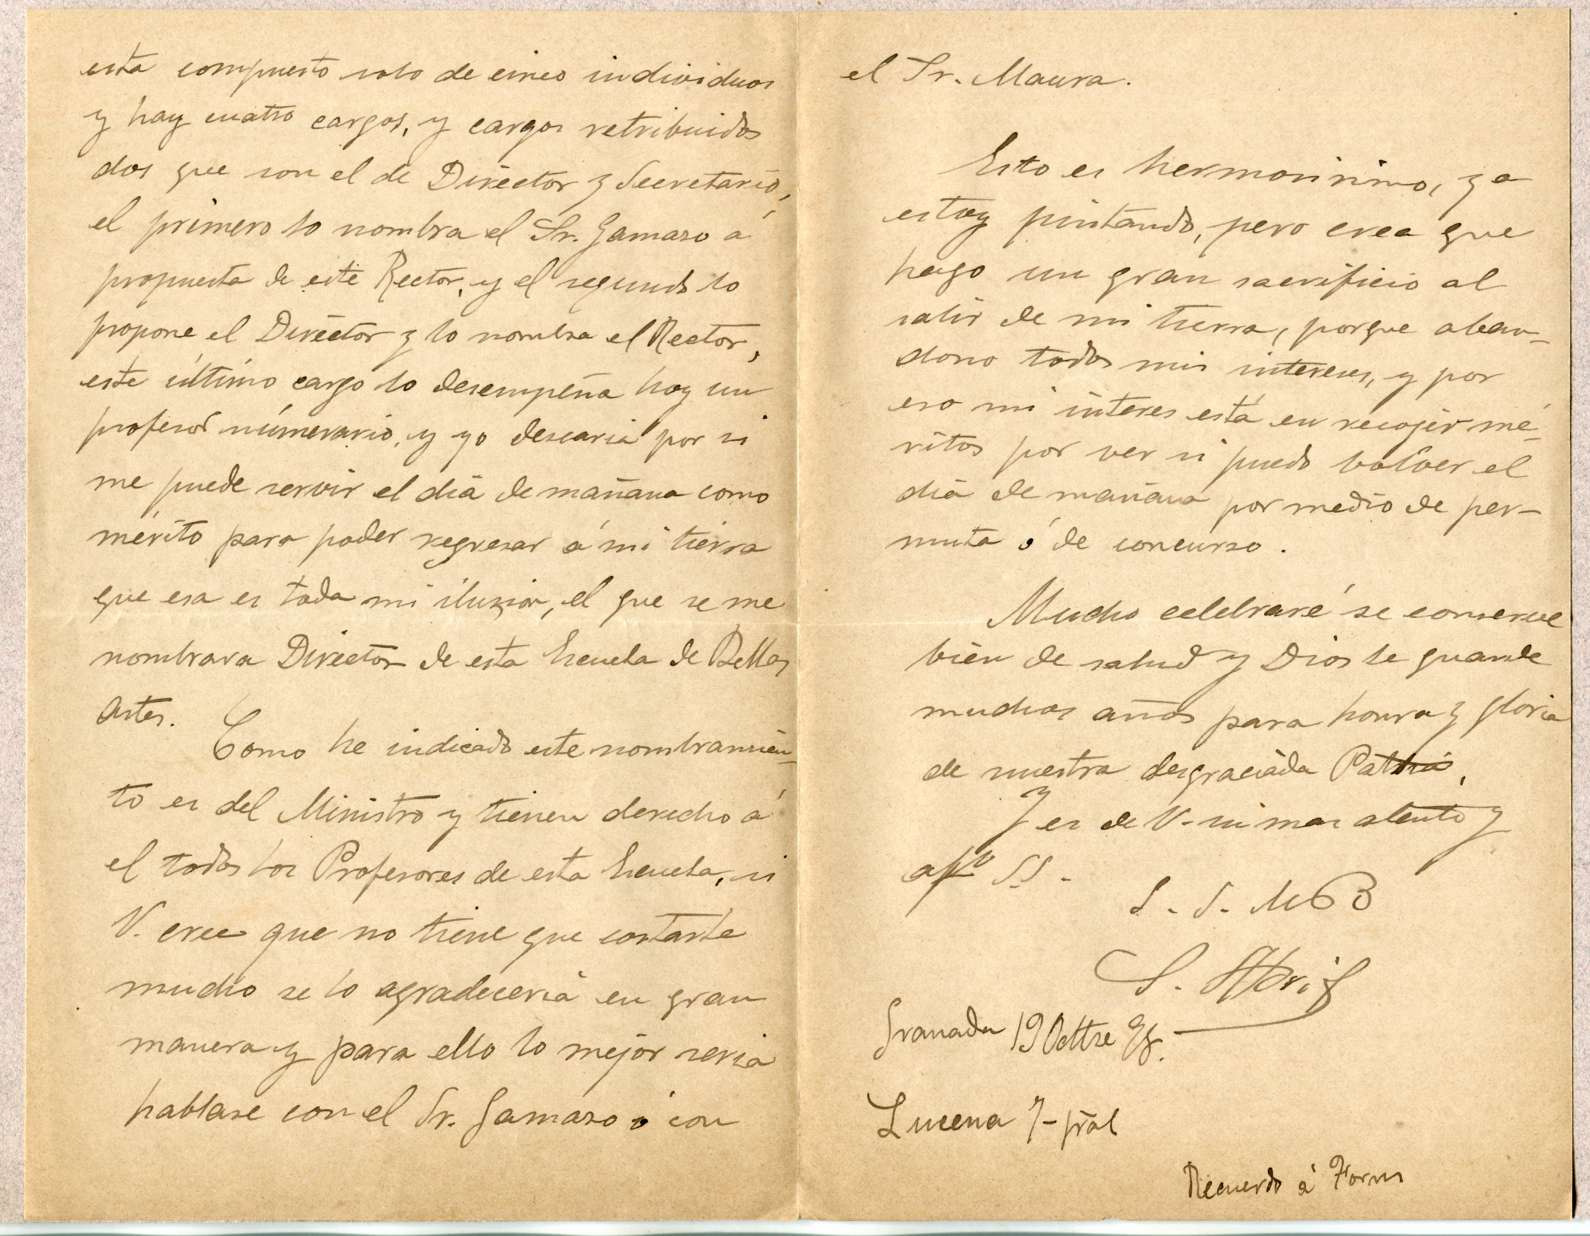 esta compuesto solo de cinco individuos
y hay cuatro cargos, y cargos retribuidos
dos que son el de Director y Secretario,
el primero lo nombra el Sr. Gamazo á
propuesta de este Rector, y el segundo lo
propone el Director y lo nombra el Rector,
este último cargo lo desempeña hoy un
profesor númerario, y yo desearia por si
me puede servir el dia de mañana como
mérito para poder regresar á mi tierra
que esa es toda mi iluzion, el que se me
nombrara Director de esta Escuela de Bellas
Artes.
Como he indicado este nombramien-
to es del Ministro y tienen derecho á
el todos los Profesores de esta Escuela, si
V. cree que no tiene que costarle
mucho se lo agradeceria en gran
manera y para ello lo mejor seria
hablase con el Sr. Gamazo ó con
el Sr. Maura.
Esto es hermosisimo, ya
estoy pintando, pero crea que
hago un gran sacrificio al
salir de mi tierra, porque aban-
dono todos mis intereses, y por
eso mi interes está en recojer mé-
ritos por ver si puedo volver el
dia de mañana por medio de per-
muta ó de concurso.
Mucho celebraré se conserve
bien de salud y Dios le guarde
muchos años para honra y gloria
de nuestra desgraciada Patria,
Y es de V. su mas atento y
affº SS.
S. Abril
Granada 19 Octtre 98.
Lucena 7- pral
Recuerdo á Forns